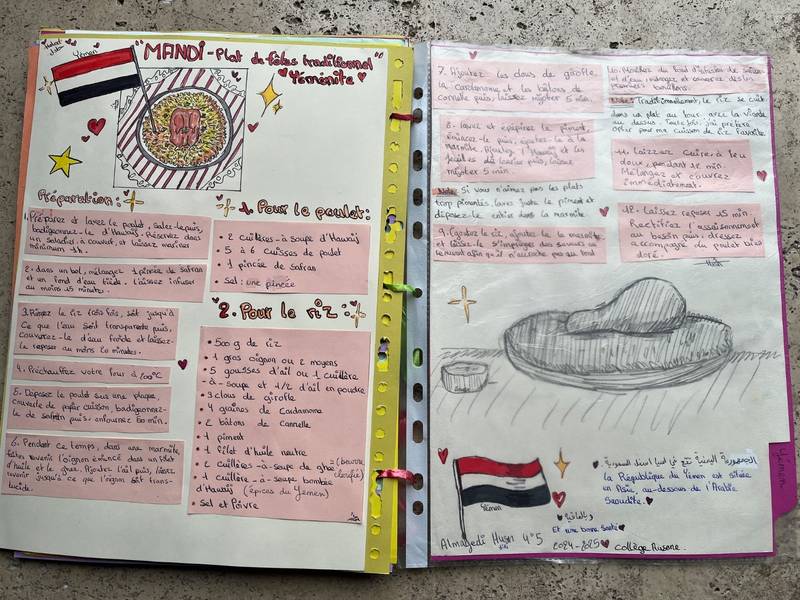 Yémen
"MANDI - Plat de fêtes traditionnel
Yéménite"
Préparation :
1. Préparez et lavez le poulet, salez-le puis,
badigeonnez-le d'Hawaij. Réservez dans
un saladier à couvert, et laissez mariner
minimum 1h.
2. dans un bol, mélangez 1 pincée de safran
et un fond d'eau tiède. Laissez infuser
au moins 15 minutes.
3. Rincez le riz 1 ou 2 fois, soit jusqu'à
Ce que l'eau soit transparente puis,
couvrez-le d'eau froide et laissez-
le reposer au moins 20 minutes.
4. Préchauffez votre four à 200°C
5. Déposez le poulet sur une plaque
couverte de papier cuisson, badigeonnez-
le de safran puis, enfournez 60 min.
6. Pendant ce temps, dans une marmite,
faites revenir l'oignon émincé dans un filet
d'huile et le ghee. Ajoutez l'ail puis, laissez
revenir jusqu'à ce que l'oignon soit trans-
lucide.
1. Pour le poulet :
• 2 cuillères-à-soupe d'Hawaij
• 5 à 6 cuisses de poulet
• 1 pincée de safran
• sel : une pincée
2. Pour le riz :
• 500 g de riz
• 1 gros oignon ou 2 moyens
5 gousses d'ail ou 1 cuillère
-à-soupe et 1/2 d'ail en poudre
• 3 clous de girofle
• 4 graines de Cardamome
• 2 bâtons de Cannelle
• 1 piment
• 1 filet d'huile neutre
• 2 cuillères-à-soupe de ghee (beurre clarifié)
• 1 cuillère-à-soupe bombée
d'Hawaij (épices du Yémen)
Sel et Poivre
7. Ajoutez les clous de girofle,
la cardamome et les bâtons de
cannelle puis, laissez mijoter 5 min.
8. Lavez et épépinez le piment,
émincez-le puis, ajoutez-le à la
marmite. Ajoutez l'Hawaij et les
puis, laissez
mijoter 5 min.
Note : Si vous n'aimez pas les plats
trop pimentés, lavez juste le piment et
déposez-le entier dans la marmite.
9. Egouttez le riz, ajoutez-le à la marmite
et laissez-le s'imprégner des saveurs en
remuant afin qu'il n'accroche pas au fond
10. Mouillez du fond d'infusion de safran
et d'eau, mélangez et couvrez dès les
premiers bouillons.
Note : Traditionnellement, le riz se cuit
dans un plat au four avec la viande
au dessus. Toutefois, j'ai préféré
opter pour ma cuisson de riz favorite.
11. Laissez cuire, à feu
doux, pendant 12 min.
Mélangez et couvrez
immédiatement.
12. Laissez reposer 15 min.
Rectifiez l'assaisonnement
au besoin puis, dressez
accompagné du poulet bien
doré.
Yémen
الجمهورية اليمنية تقع في اسيا اسفل السعودية
la République du Yémen est située
en Asie, au-dessous de l'Arabie
Saoudite.
وبالعافية
Et une bonne santé
Almagedi Husn 4°5 2024-2025 collège
Yémen